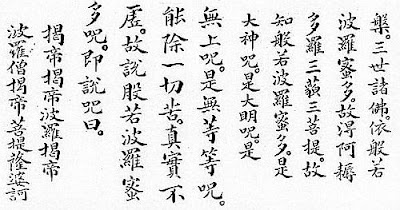 槃。三世諸佛。依般若
波羅蜜多。故得阿耨
多羅三藐三菩提。故
知般若波羅蜜多。是
大神呪。是大明呪。是
無上呪。是無等等呪。
能除一切苦。真實不
虛。故說般若波羅蜜
多呪。即說呪曰。
揭帝揭帝波羅揭帝
波羅僧揭帝菩提薩婆訶